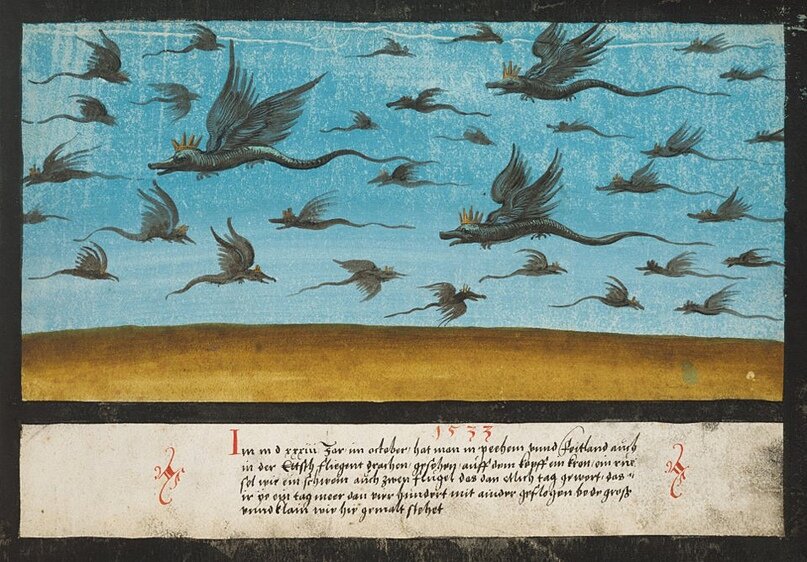 1533
Im m d xxxiii Jar im october hat man in pechem vnnd foitland auch
in der fliegent drachen gesehen auff dem kopff ein kron ein rüe
sel wie ein schwein auch zwen flügel das hat etlich tag gewert das
ir vf ein tag meer dan vier hundert mit ainder geflogen bede groß
vnnd klain wie hie gemalt stehet